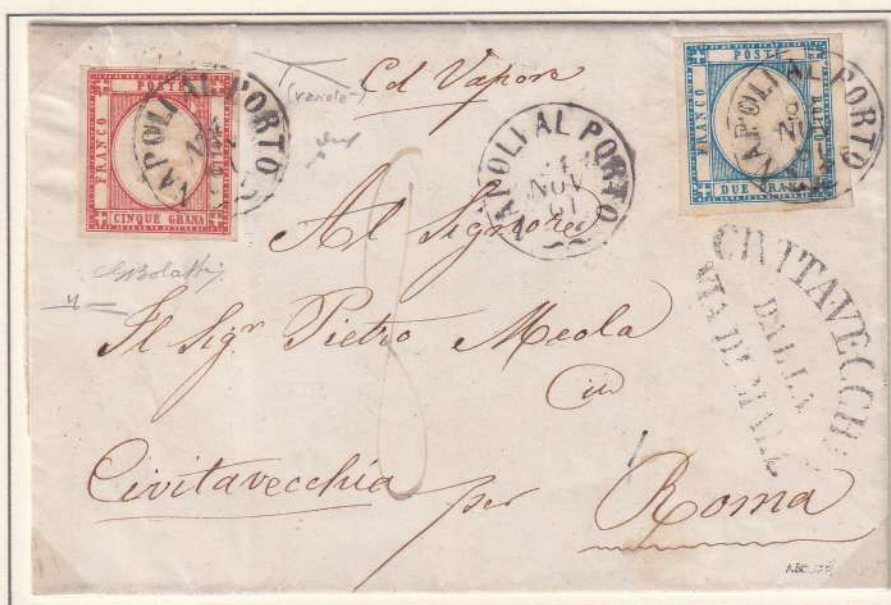 POSTE
FRANCO
BOLLO
CINQUE GRANA
NAPOLI AL PORTO
(varietà)
Col Vapore
NAPOLI AL PORTO
21
NOV
61
POSTE
FRANCO
BOLLO
DUE GRANA
NAPOLI AL PORTO
NOV
Al Signore
GBolaffi
CIVITAVECCHI
DALLA
VIA DI MARE
Il Sigr Pietro Meola
8
in
Civitavecchia per Roma